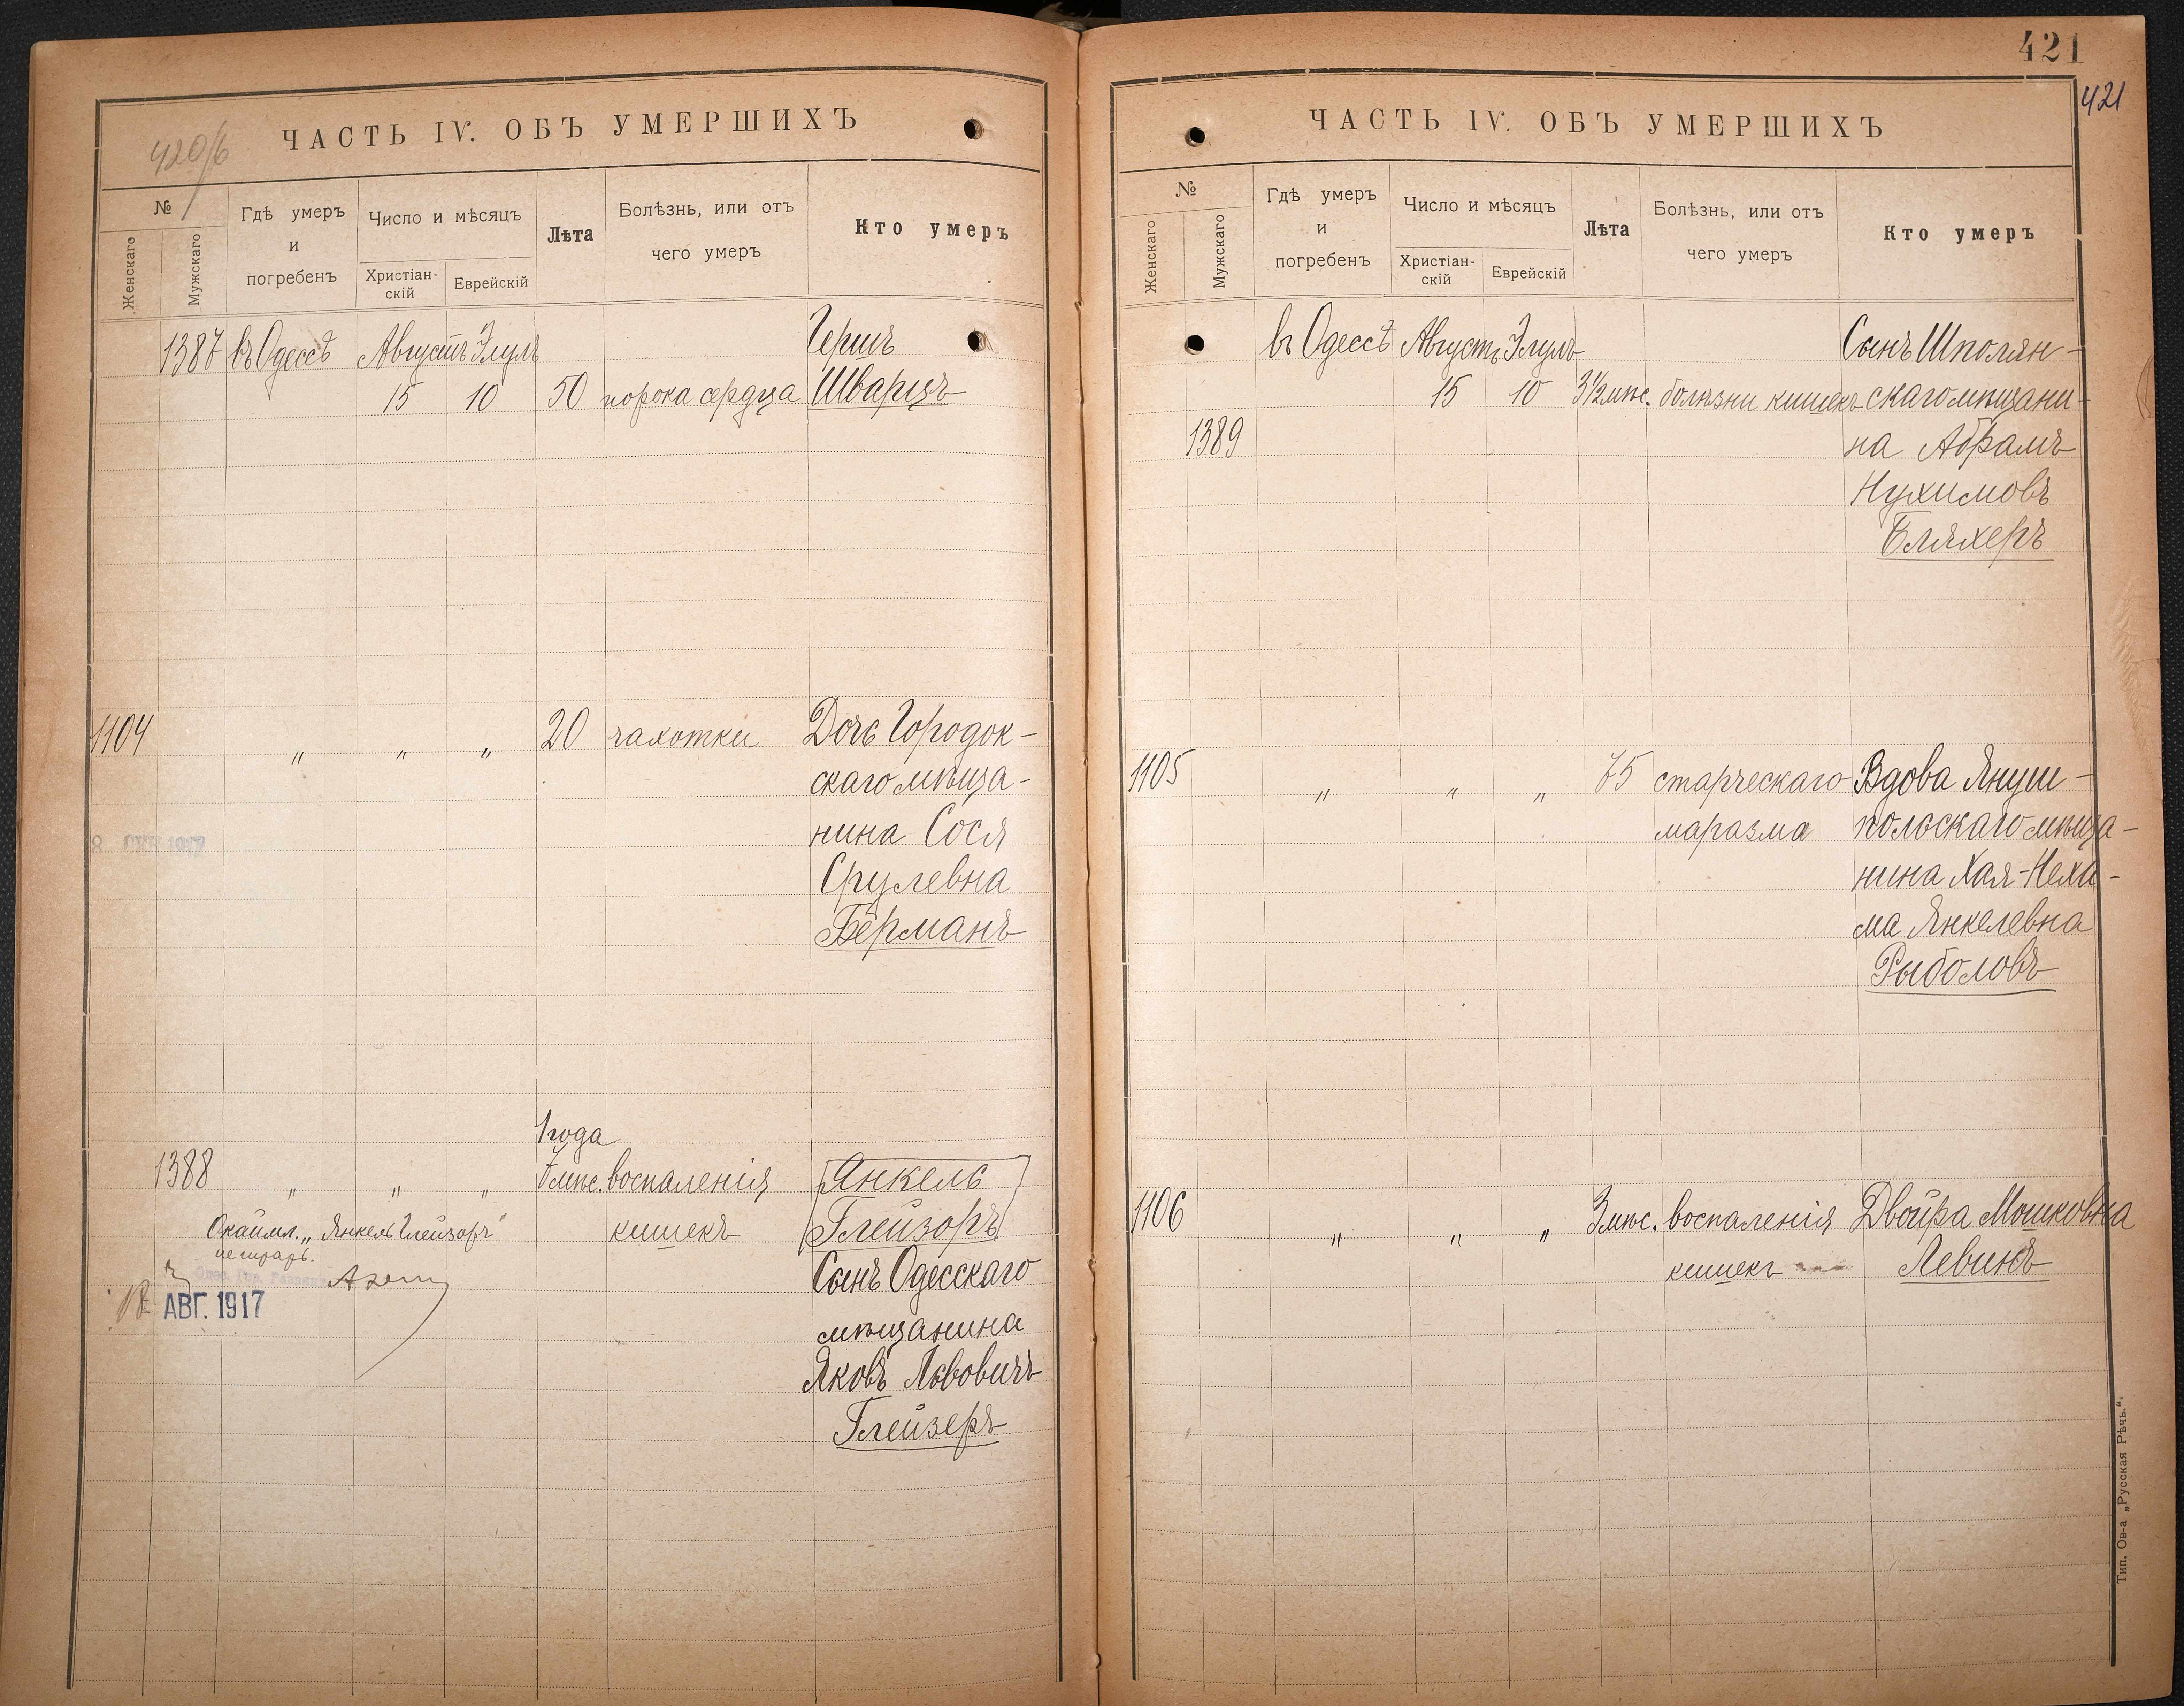 420/б
ЧАСТЬ IV. ОБЪ УМЕРШИХЪ
№
Женскаго
Мужскаго
Гдѣ умеръ
и
погребенъ
Число и мѣсяцъ
Христіан-
скій
Еврейскій
Лѣта
Болѣзнь, или отъ
чего умеръ
Кто умеръ
1387 въ Одессѣ Августъ Элулъ Герш
15 10 50 порока сердца Шварцъ
1104 " " " 20 чахотки Дочь Городок-
скаго мѣща-
нина Сося
Срулевна
Берманъ
1917
1 года
1388 " " " 7 мѣс. воспаленія Янкель
кишекъ Глейзоръ
Окаймл. „Янкель Глейзоръ"
не читать.
АВГ. 1917
Сынъ Одесскаго
мѣщанина
Яковъ Львовичъ
Глейзеръ
421
421
ЧАСТЬ IV. ОБЪ УМЕРШИХЪ
№
Женскаго
Мужскаго
Гдѣ умеръ
и
погребенъ
Число и мѣсяцъ
Христіан-
скій
Еврейскій
Лѣта
Болѣзнь, или отъ
чего умеръ
Кто умеръ
въ Одессѣ Августъ Элулъ Сынъ Шполян-
15 10 3½ мѣс. болѣзни кишекъ скаго мѣщани-
1389 на Абрамъ
Нухимовъ
Бляхеръ
1105 " " " 75 старческаго Вдова Януш-
маразма польскаго мѣща-
нина Хая-Неха-
ма Янкелевна
Рыболовъ
1106 " " " 3 мѣс. воспаленія Двойра Мошковна
кишекъ Левинъ
Тип. Ов-а „Русская Рѣчь."